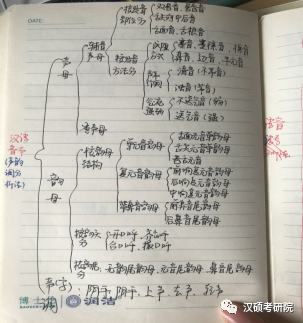 DATE:
汉语
音节
(声韵
调分
析法)
声母
辅音
声母
按发音
部位分
双唇音、唇齿音
舌尖前中后音
舌面音、舌根音
按发音
方法分
成阻
除阻
塞音、塞擦音、擦音
鼻音、边音
清音(不带音)
浊音(带音)
气流
强弱
不送气音(弱)
送气音(强)
零声母
韵母
按韵母
结构
单元音韵母
舌面元音韵母
舌尖元音韵母
复元音韵母
前响复元音韵母
后响复元音韵母
中响复元音韵母
鼻音韵母
前鼻音韵母
后鼻音韵母
按韵头
分
开口呼、齐齿呼
合口呼、撮口呼
按韵尾:无韵尾韵母、元音尾韵母、鼻音尾韵母
声调
阴平、阳平、上声、去声、轻声
博士
润洁
汉硕考研室